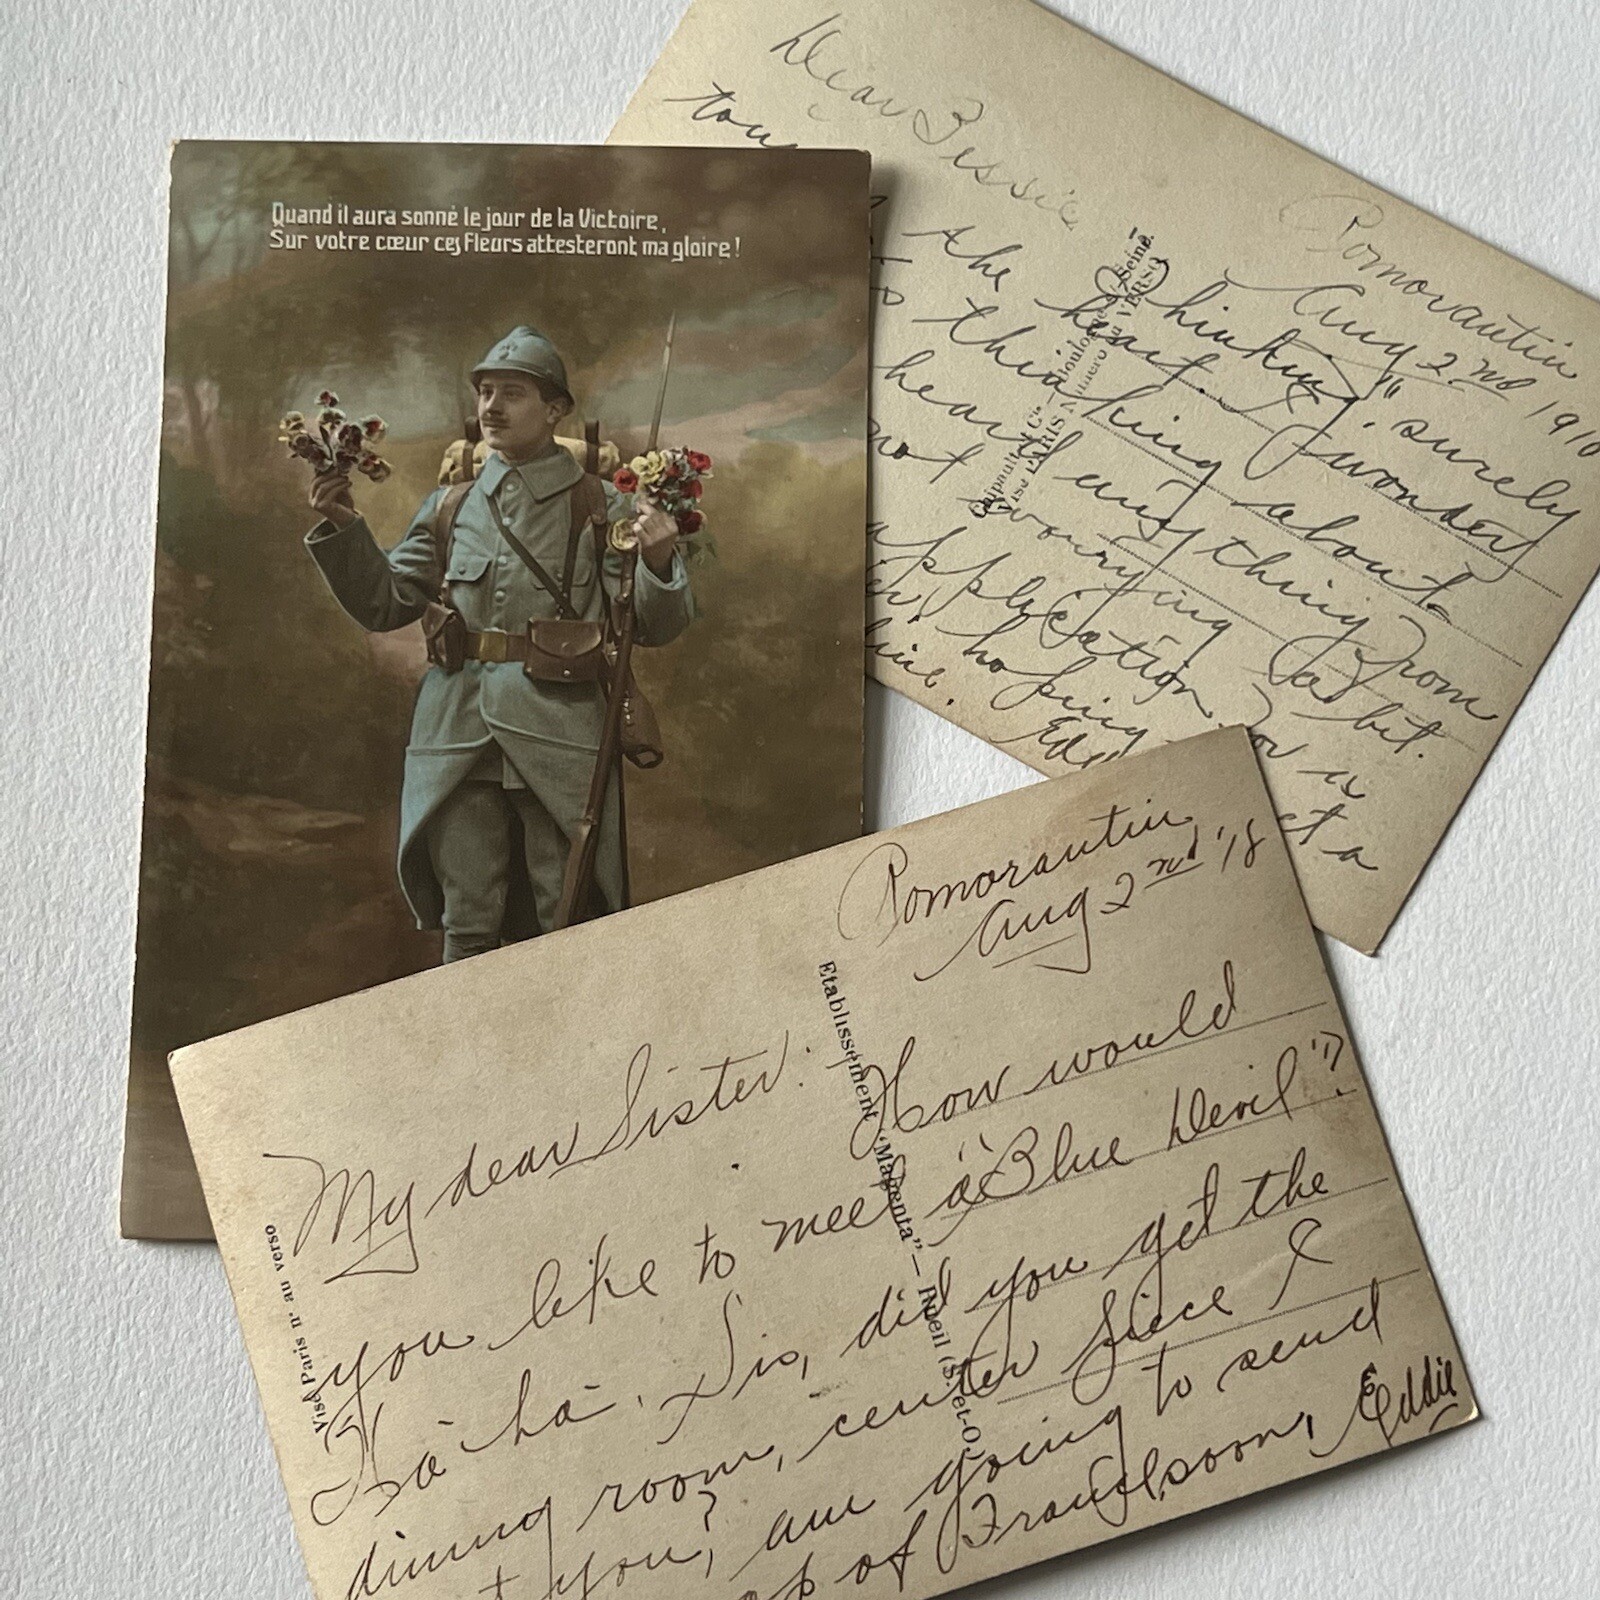 Quand il aura sonné le jour de la Victoire,
Sur votre cœur ces Fleurs attesteront ma gloire !
Dear Bessie
Romorantin
Aug 2nd 191
Thinking", surely
the heart. I wonder
thinking about
hear anything from
not worrying a bit.
application for a
hoping
et a
Romorantin
Aug 2nd '18
My dear Sister: How would
you like to meet a "Blue Devil"?
Ha ha. Sis, did you get the
dining room, center piece I
you, am going to send
of France soon, Eddie
Etablissement "Magenta" — Rueil (S.-et-O.
Visé Paris n° au verso